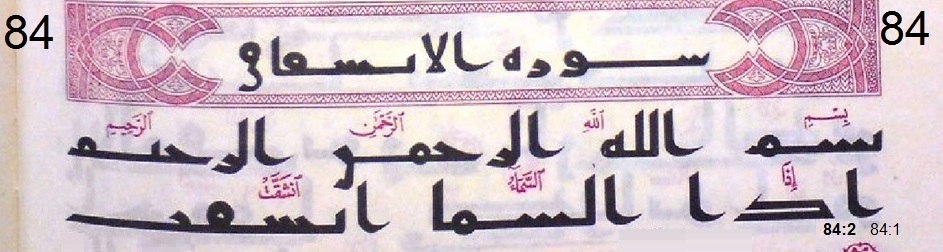 84 سورة الانشقاق 84
بِسْمِ ٱللَّهِ ٱلرَّحْمَٰنِ ٱلرَّحِيمِ
بسم الله الرحمن الرحيم
إِذَا ٱلسَّمَآءُ ٱنشَقَّتْ
اذا السما انشقت
84:2 84:1